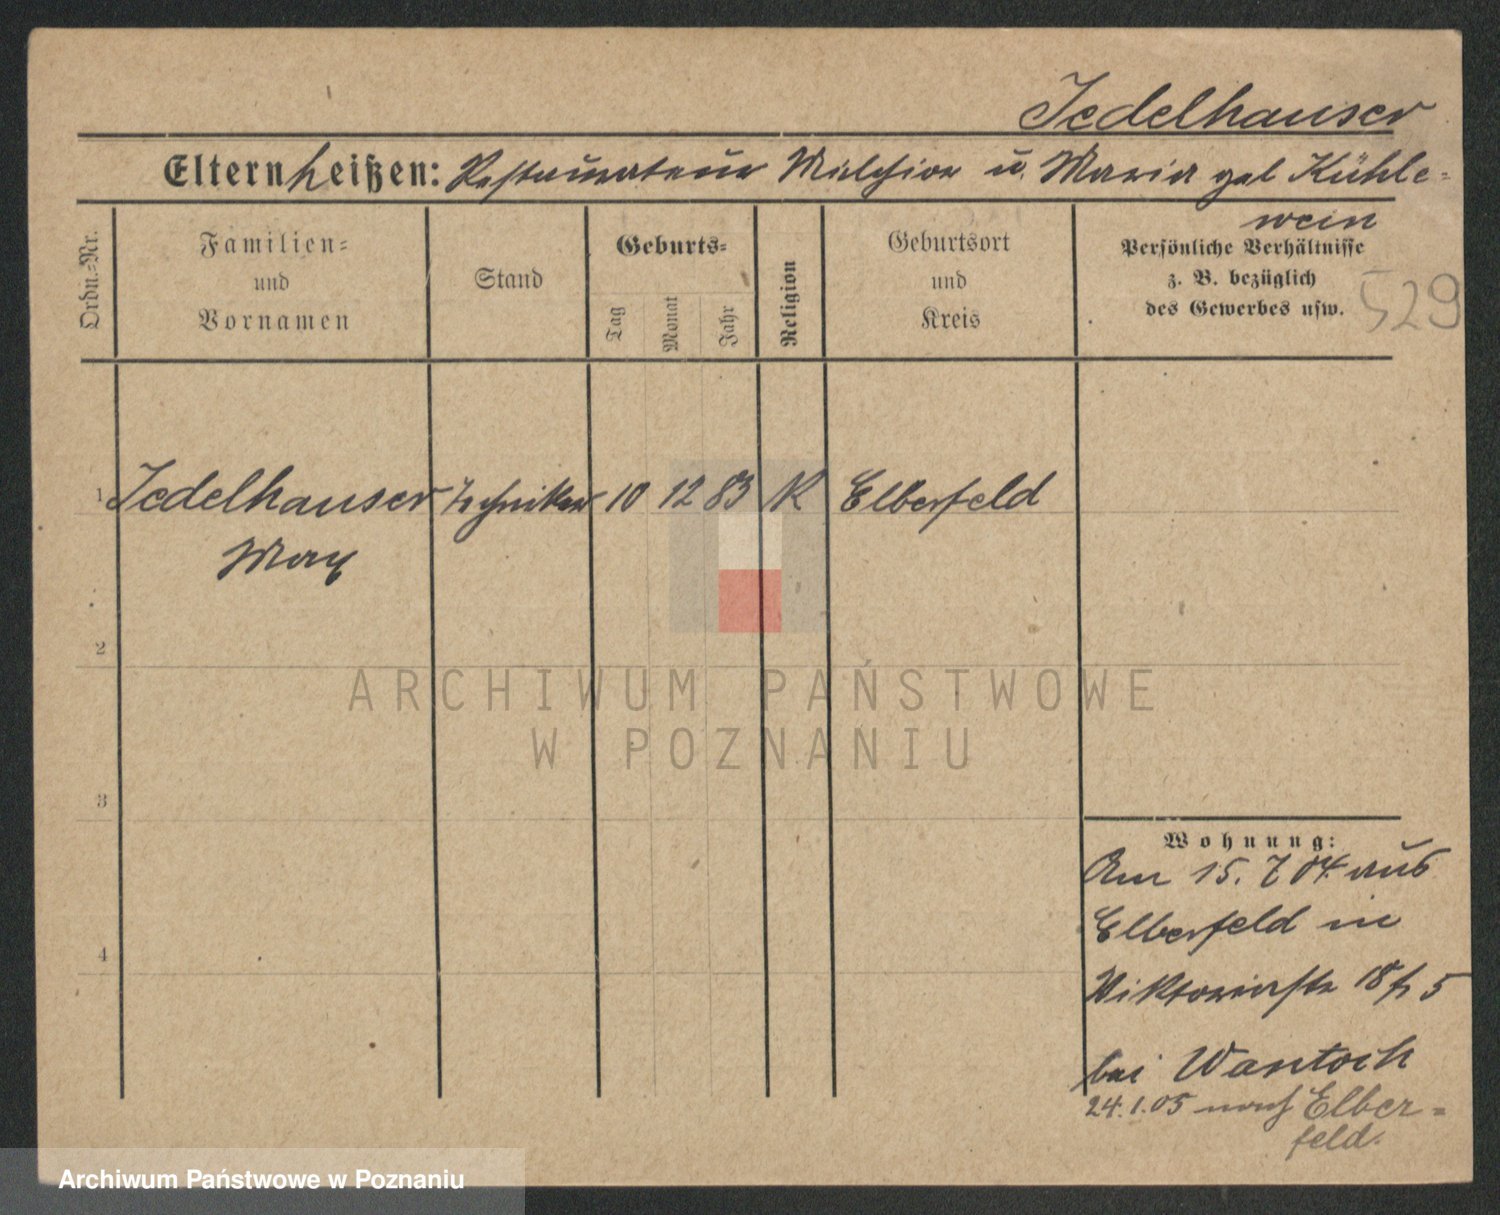 Jedelhauser
Eltern heißen: Restaurateur Melchior u. Maria geb Kühle=
wein
Ordn.=Nr.
Familien=
und
Vornamen
Stand
Geburts=
Tag
Monat
Jahr
Religion
Geburtsort
und
Kreis
Persönliche Verhältnisse
z. B. bezüglich
des Gewerbes usw.
529
1 Jedelhauser Techniker 10 12 83 K Elberfeld
Max
2
3
4
Wohnung:
Am 15. 7 04. aus
Elberfeld in
Viktoriastr 18 5
bei Wantoch
24.1.05 nach Elber=
feld.
ARCHIWUM PAŃSTWOWE
W POZNANIU
Archiwum Państwowe w Poznaniu